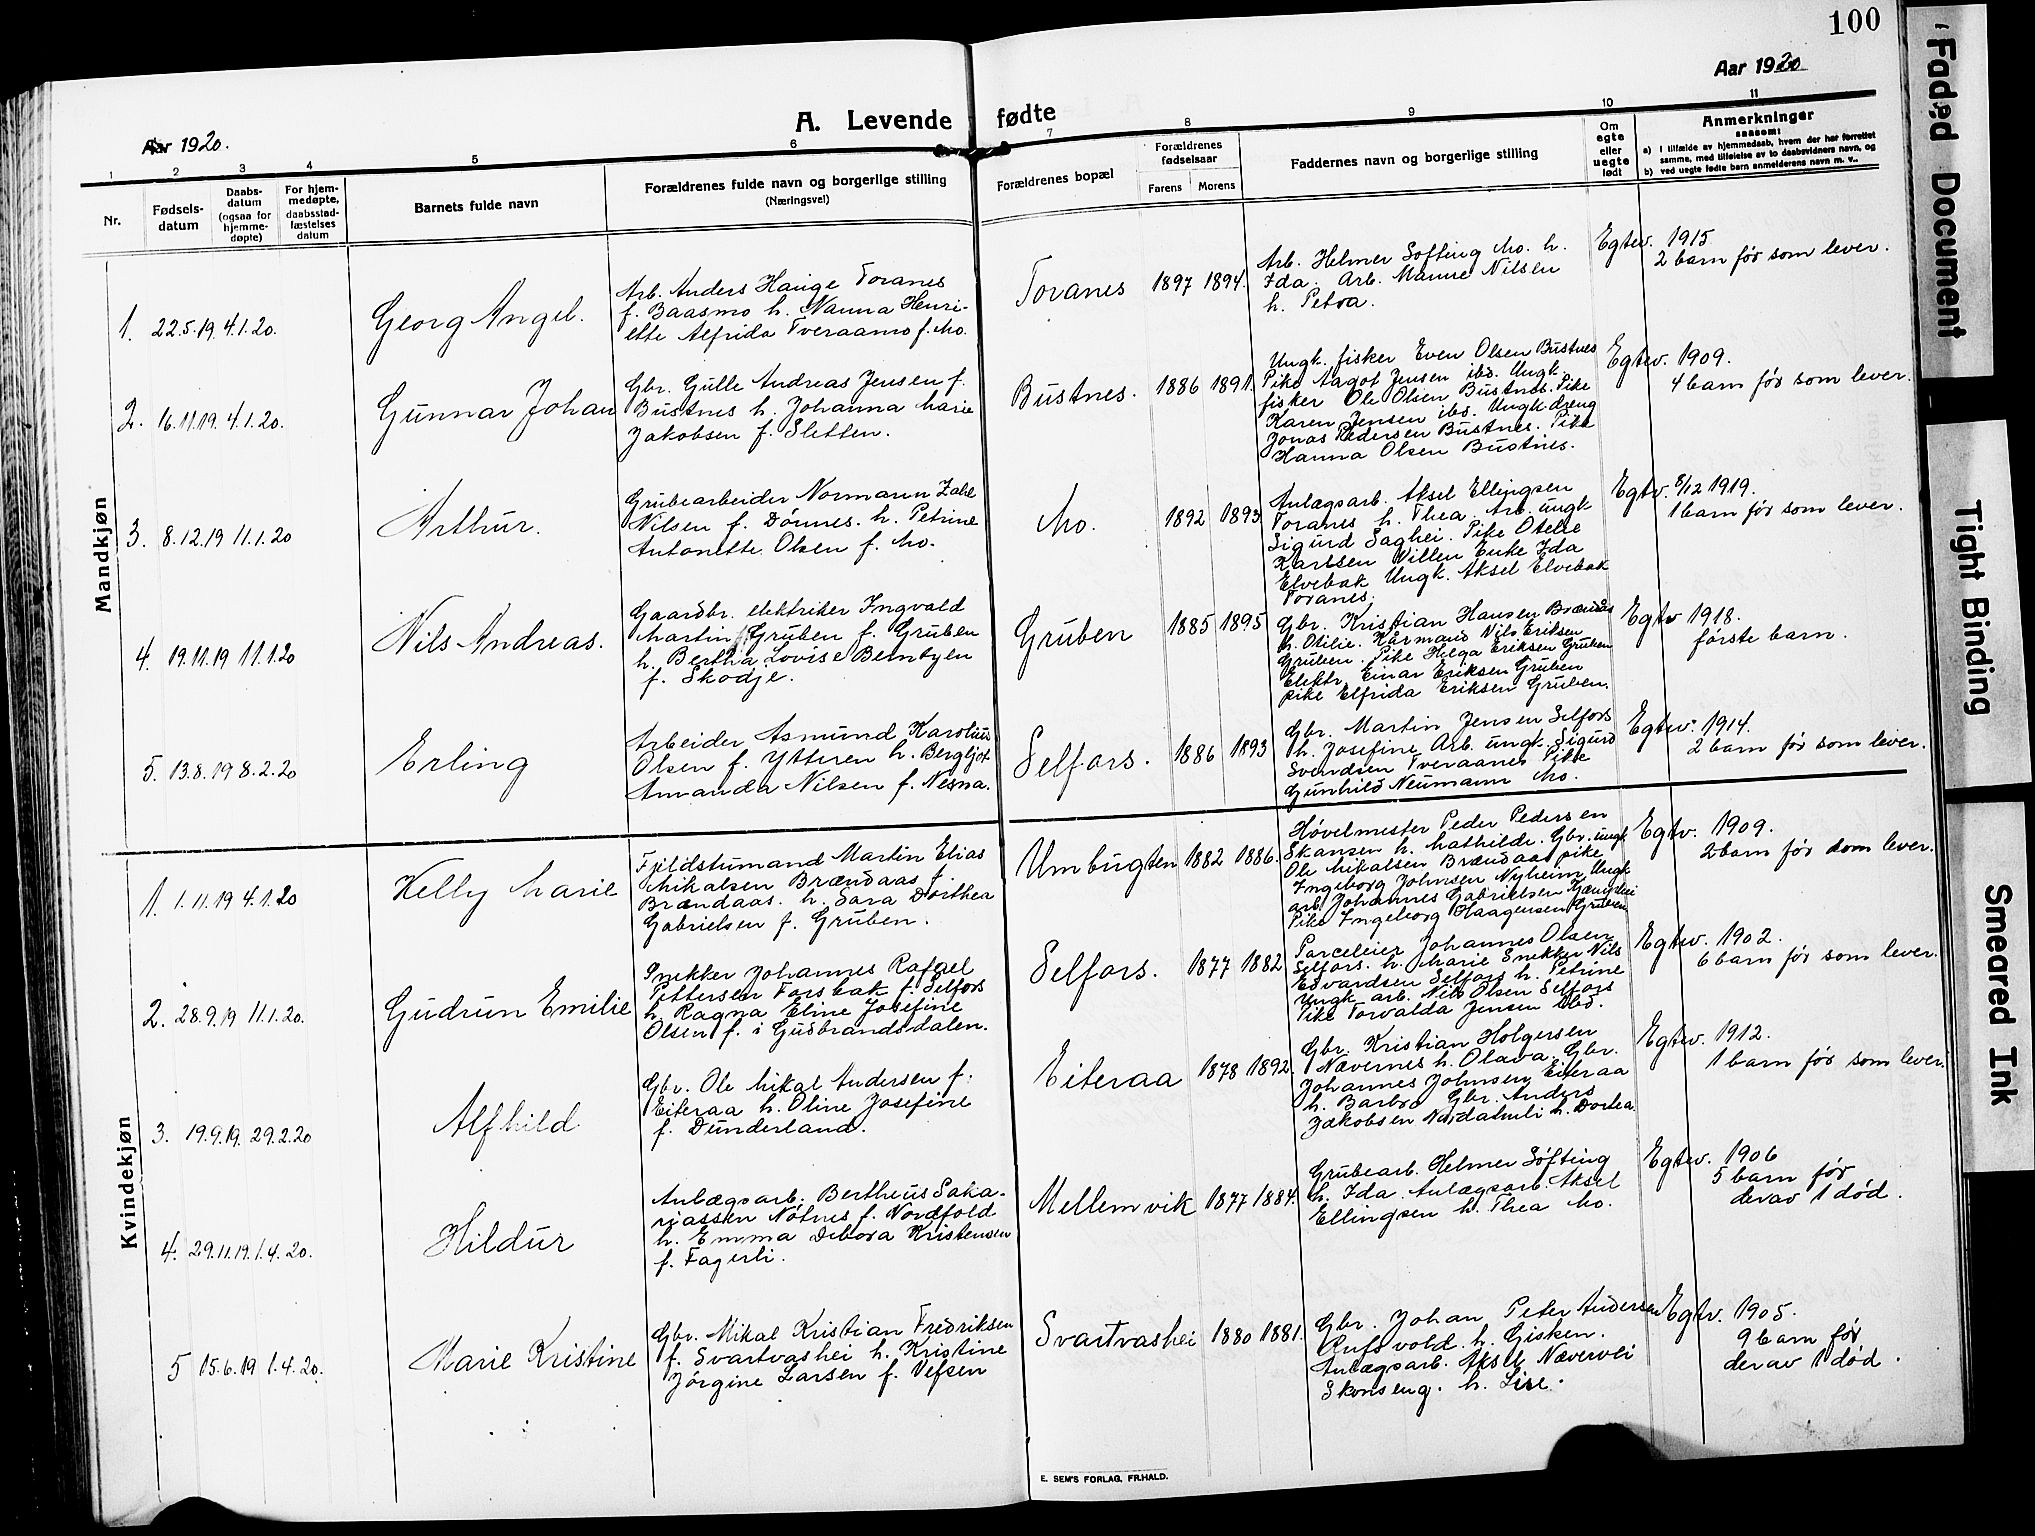 100
Aar 1920.
A. Levende fødte
Aar 1920
1 2 3 4 5 6 7 8 9 10 11
Nr.
Fødsels-
datum
Daabs-
datum
(ogsaa for
hjemme-
døpte)
For hjem-
medøpte,
daabsstad-
fæstelses
datum
Barnets fulde navn
Forældrenes fulde navn og borgerlige stilling
(Næringsvei)
Forældrenes bopæl
Forældrenes
fødselsaar
Farens Morens
Faddernes navn og borgerlige stilling
Om
egte
eller
uegte
født
Anmerkninger
saasom:
a) i tilfælde av hjemmedaab, hvem der har forrettet
samme, med tilføielse av to daabsvidners navn, og
b) ved uegte fødte barn anmelderens navn m. v..
Mandkjøn
1. 22.5.19 4.1.20.
Georg Angel.
Arb. Anders Hauge Toranes
f. Baasmo h. Nanna Henri-
ette Alfrida Tveraamo f. Mo.
Toranes 1897 1894.
Arb. Helmer Softing Mo. h.
Ida. Arb. Marine Nilsen
h. Petra.
Egtev. 1915
2 barn før som lever.
2. 16.11.19. 4.1.20.
Gunnar Johan
Gbr. Gulle Andreas Jensen f.
Bustnes h. Johanna Marie
Jakobsen f. Sletten.
Bustnes. 1886 1891.
Ungk. fisker Even Olsen Bustnes
Pike Aagot Jensen ibd. Ungk.
fisker Ole Olsen Bustnes. Pike
Karen Jensen ibd. Ungk. dreng
Jonas Pedersen Bustnes. Pike
Hanna Olsen Bustnes.
Egtev. 1909.
4 barn før som lever.
3. 8.12.19 11.1.20
Arthur.
Grubearbeider Normann Zahl
Nilsen f. Dønnes. h. Petrine
Antonette Olsen f. Mo.
Mo. 1892 1893
Anlægsarb. Aksel Ellingsen
Toranes h. Thea. Arb. ungk.
Sigurd Saghei. Pike Otelie
Karlsen Villen Enke Ida
Elvebak Ungk. Aksel Elvebak
Toranes.
Egtv. 8/12 1919.
1 barn før som lever.
4. 19.11.19 11.1.20
Nils Andreas.
Gaardbr. elektriker Ingvald
Martin Gruben f. Gruben
h. Bertha Lovise Bentzen
f. Skodje.
Gruben 1885 1895
Gbr. Kristian Hansen Brændås
h. Otilie. Kårmand Nils Eriksen
Gruben. Pike Helga Eriksen Gruben
Elektr. Einar Eriksen Gruben
pike Elfrida Eriksen Gruben.
Egtv 1918.
første barn.
5. 13.8.19 8.2.20
Erling
Arbeider Asmund Karolius
Olsen f. Ytteren h. Bergljot
Amanda Nilsen f. Nesna.
Selfors. 1886 1893
Gbr. Martin Jensen Selfors
h. Josefine Arb. ungk. Sigurd
Svendsen Tveraanes Pike
Gunhild Neumann Mo.
Egtev. 1914.
2 barn før som lever.
Kvindekjøn
1. 1.11.19 4.1.20
Kelly Marie
Fjeldstumand Martin Elias
Mikalsen Brændaas f.
Brændaas. h. Sara Dorthea
Gabrielsen f. Gruben.
Umbugten 1882 1886.
Høvelmester Peder Pedersen
Skansen h. Mathilde. Gbr. ungk.
Ole Mikalsen Brændaas pike
Ingeborg Johnsen Nyheim Ungk.
arb. Johannes Gabrielsen Kjængshei
Pike Ingeborg Haagensen Gruben
Egtv. 1909.
2 barn før som lever.
2. 28.9.19 11.1.20.
Gudrun Emilie
Snekker Johannes Rafael
Pettersen Forsbak f. Selfors
h. Ragna Eline Josefine
Olsen f. i Gudbrandsdalen.
Selfors. 1877 1882
Parceleier Johannes Olsen
Selfors. h. Marie Snekker Nils
Edvardsen Selfors h. Petrine
Ungk. arb. Nils Olsen Selfors
Pike Torvalda Jensen ibd.
Egtev. 1902.
6 barn før som lever.
3. 19.9.19. 29.2.20
Alfhild
Gbr. Ole Mikal Andersen f.
Eiteraa h. Oline Josefine
f. Dunderland.
Eiteraa 1878 1892.
Gbr. Kristian Holgersen
Nævernes h. Olava. Gbr.
Johannes Johnsen Eiteraa
h. Barbro Gbr. Anders
Jakobsen Nordahuli h. Dortea
Egtev. 1912.
1 barn før som lever.
4. 29.11.19. 1.4.20.
Hildur
Anlægsarb. Bertheus Saka-
riassen Nötnes f. Nordfold
h. Emma Debora Kristensen
f. Fagerli.
Mellemvik 1877 1884.
Grubearb. Helmer Søfting
h. Ida. Anlægsarb. Aksel
Ellingsen h. Thea Mo.
Egtev. 1906
5 barn før
derav 1 død.
5 15.6.19 1.4.20.
Marie Kristine
Gbr. Mikal Kristian Fredriksen
f. Svartvashei h. Kristine
Jørgine Larsen f. Vefsen
Svartvashei 1880 1881.
Gbr. Johan Peter Andersen
Rufsvold h. Gisken.
Anlægsarb. Aksel Næverlei
Skonseng. h. Lise.
Egtv. 1905.
9 barn før
derav 1 død.
E. SEM'S FORLAG, FR.HALD.
Faded Document
Tight Binding
Smeared Ink